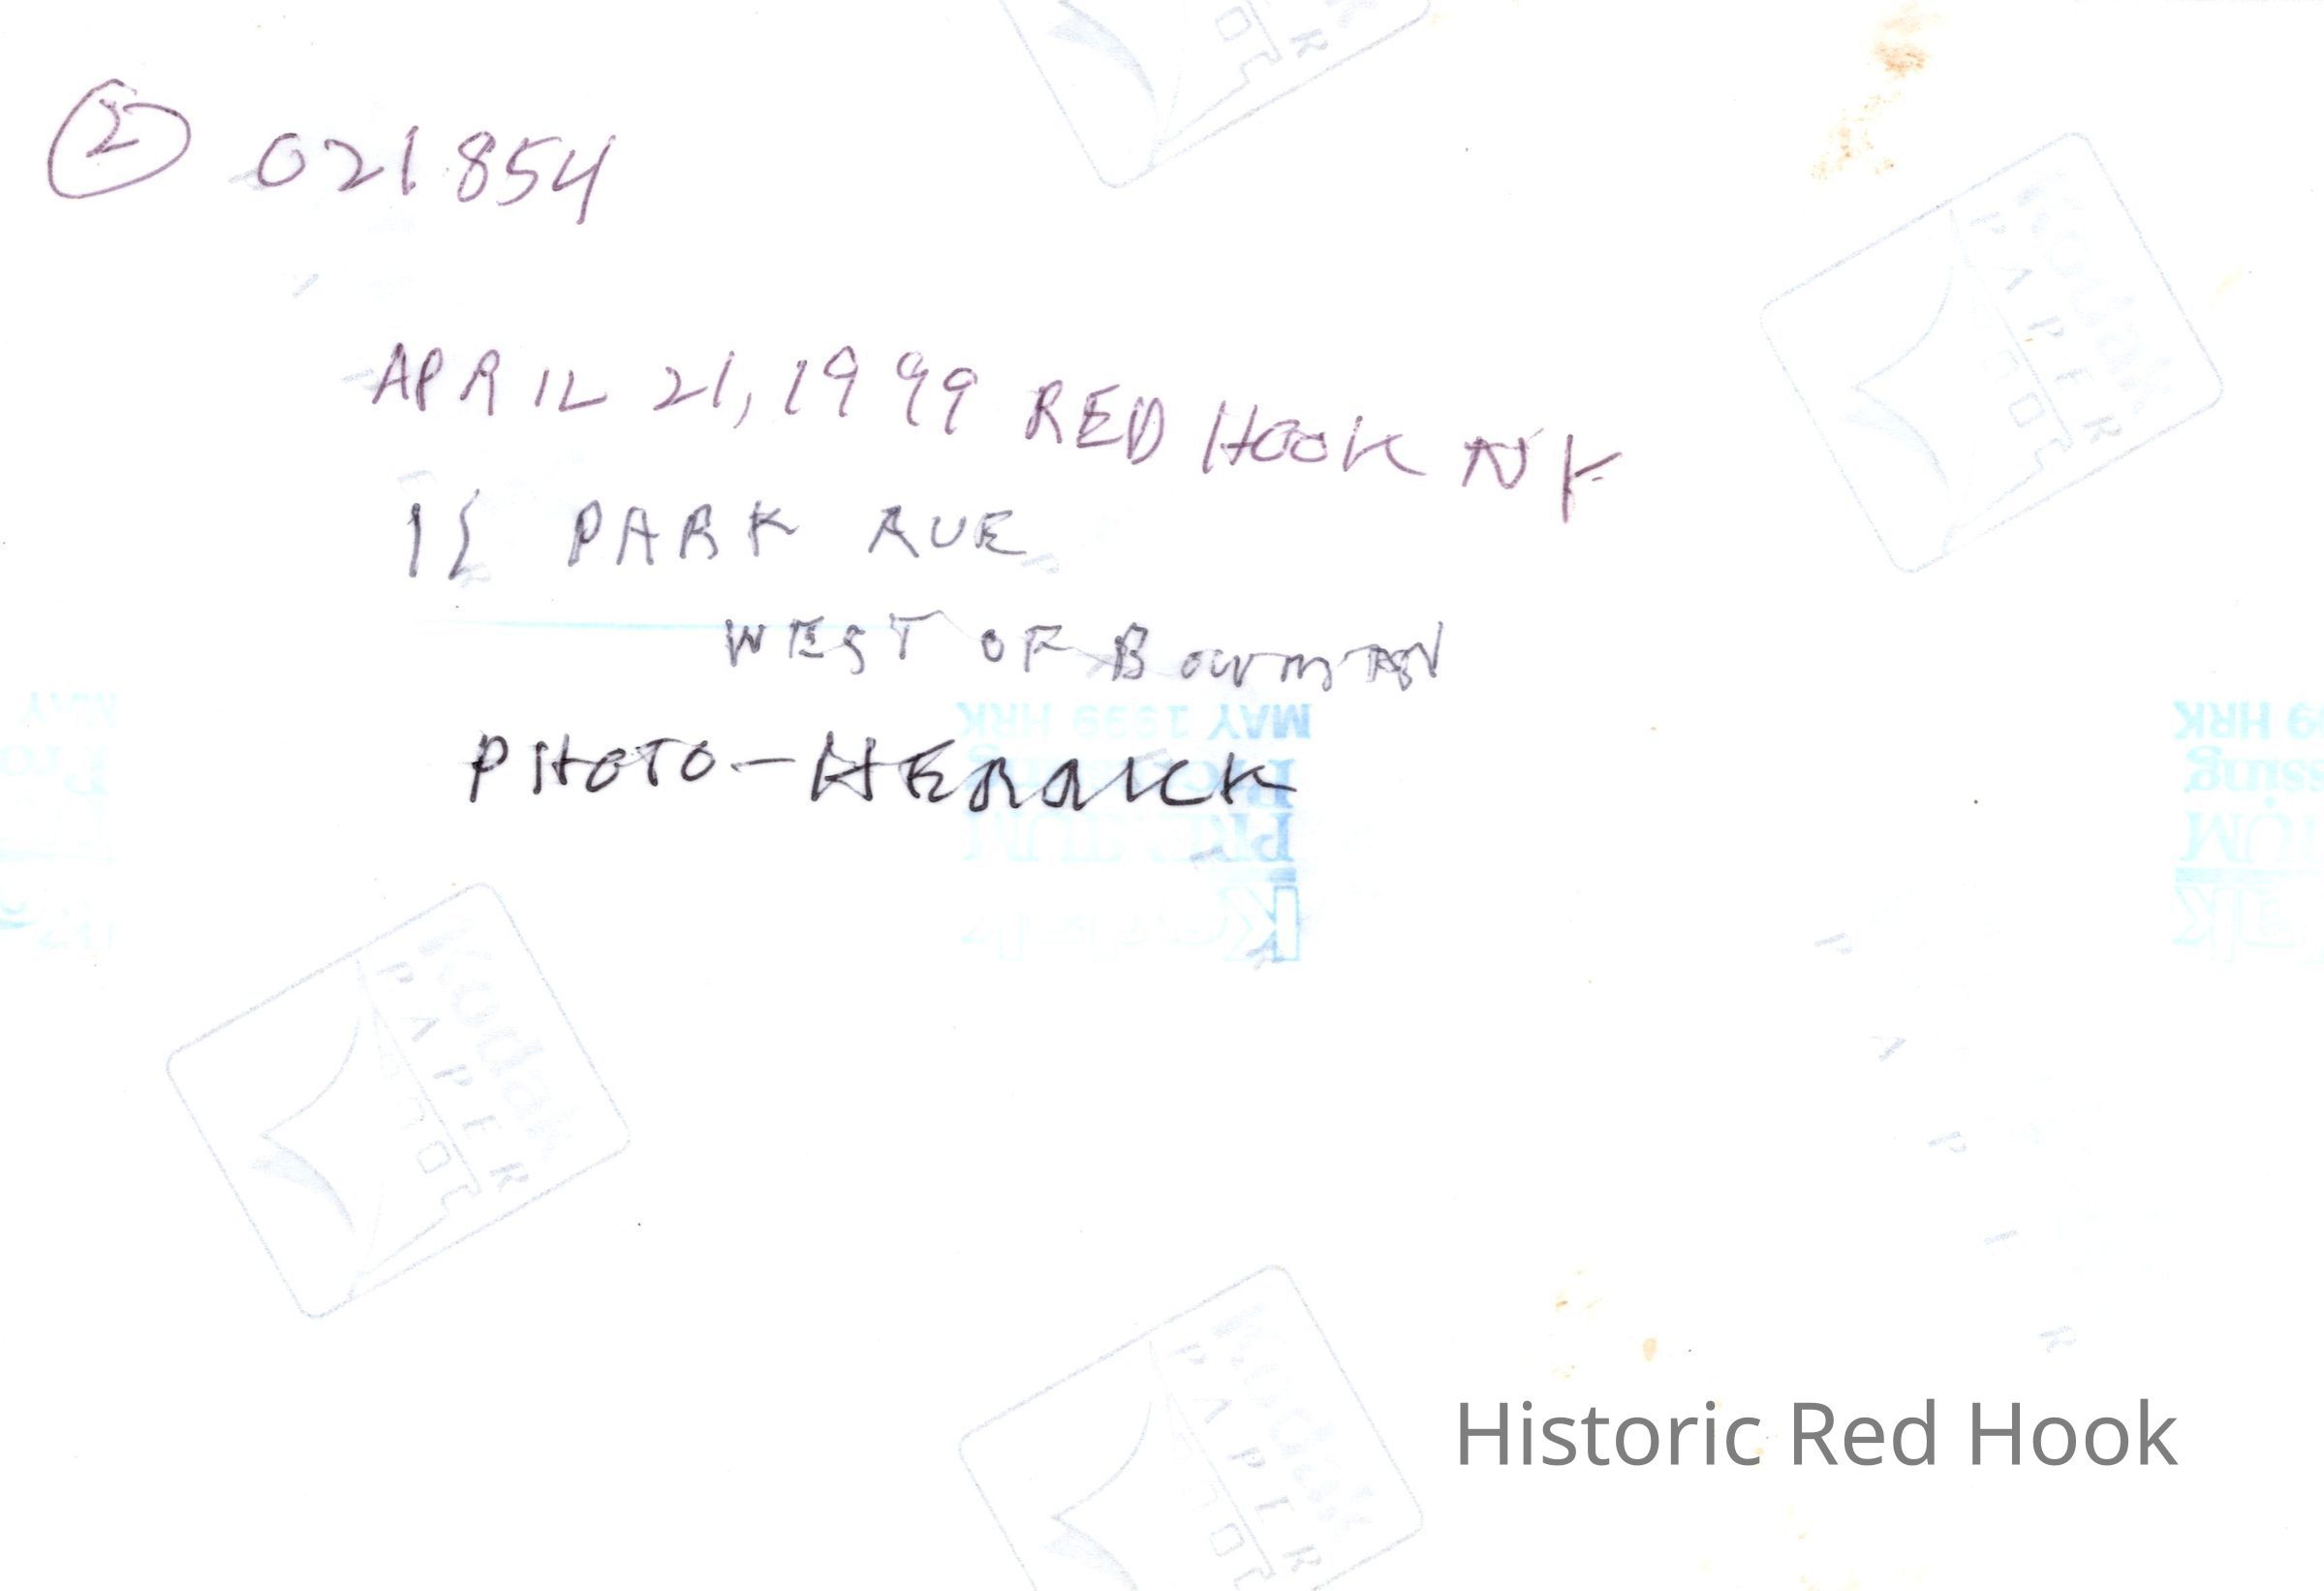 ② 021854
APRIL 21, 1999 RED HOOK NY
PARK AVE
WEST OF BOWMAN
MAY 1999 HRK
PHOTO - HERRICK
Kodak
PAPER
Historic Red Hook